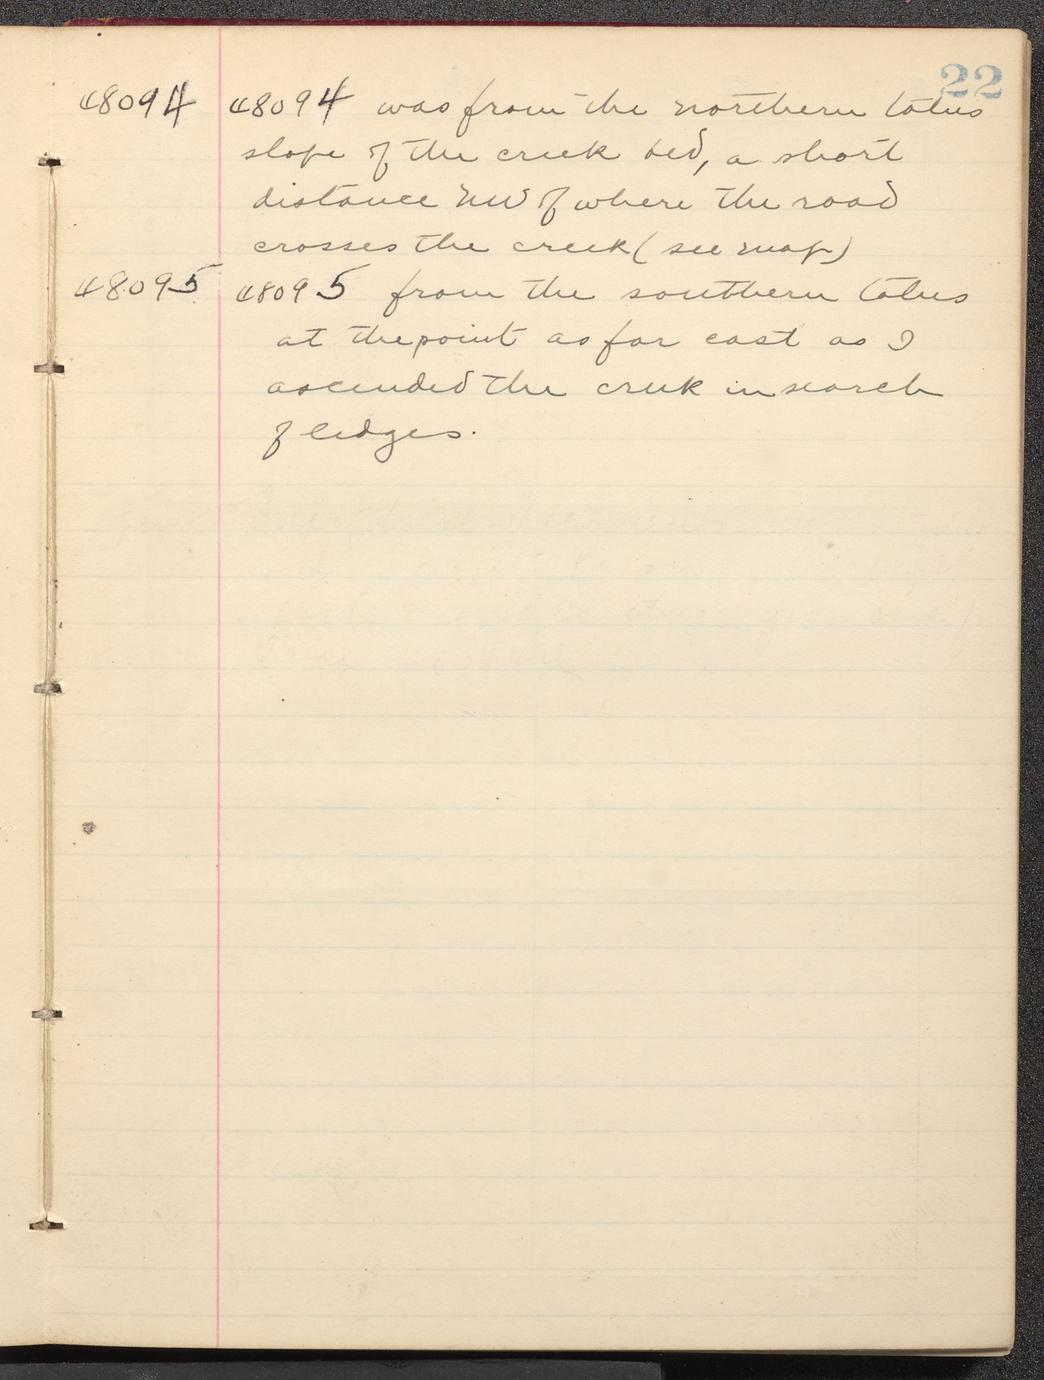 22
48094 48094 was from the northern talus
slope of the creek bed, a short
distance NW of where the road
crosses the creek (see map)
48095 48095 from the southern talus
at the point as far east as I
ascended the creek in search
of ledges.